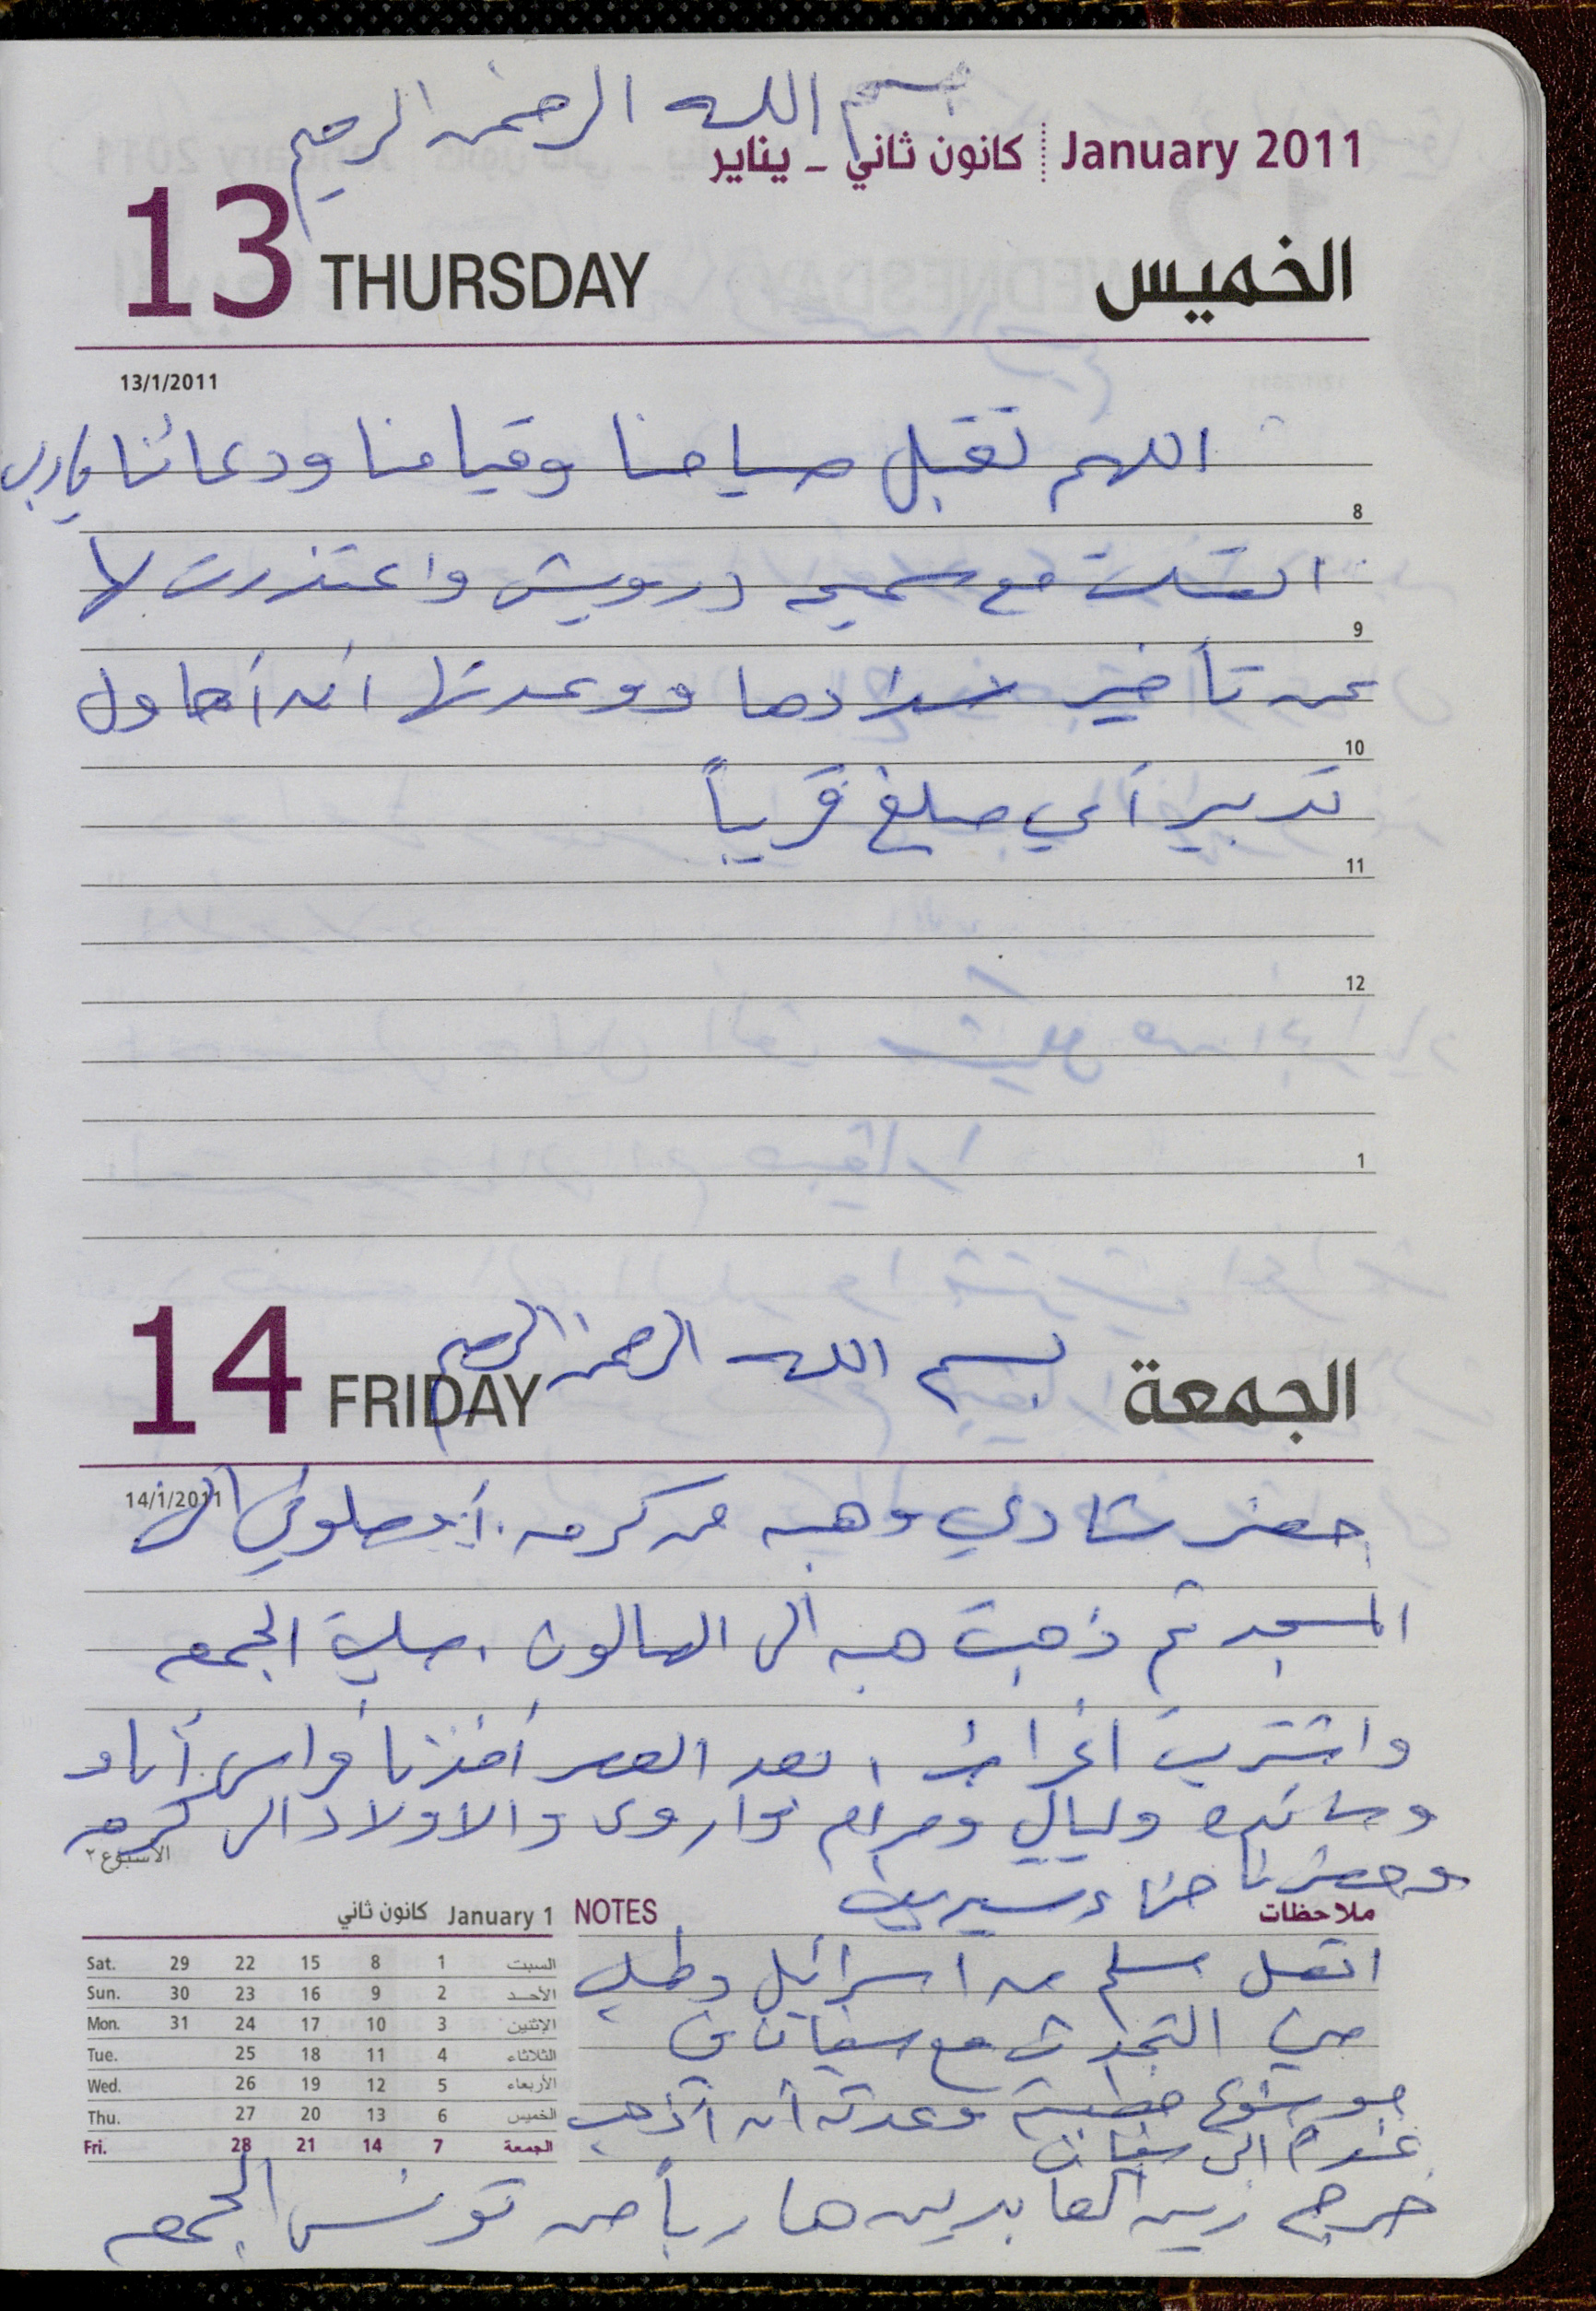 بسم الله الرحمن الرحيم
January 2011 كانون ثاني - يناير
13 THURSDAY الخميس
13/1/2011
اللهم تقبل صيامنا وقيامنا ودعائنا يارب
8
التقيت مع سميحه درويش واعتذرت لها
9
عن تأخير سدادها ووعدتها أن أحاول
10
تدبير أي مبلغ قريباً
11
12
1
14 FRIDAY بسم الله الرحمن الرحيم الجمعة
14/1/2011
حضر شادي وهبه من كرمه. أوصلوني الى
المسجد ثم ذهبت هبه الى الصالون. صليت الجمعه
واشتريت اغراض. بعد العصر أخذنا فراس أنا و
وليالي ومرام وأروى والاولاد الى كرمه
الأسبوع ٢
وحضرنا حناء سيرين
January 1 كانون ثاني
NOTES ملاحظات
Sat. 29 22 15 8 1 السبت
Sun. 30 23 16 9 2 الأحد
Mon. 31 24 17 10 3 الإثنين
Tue. 25 18 11 4 الثلاثاء
Wed. 26 19 12 5 الأربعاء
Thu. 27 20 13 6 الخميس
Fri. 28 21 14 7 الجمعة
اتصل مسلم من اسرائيل وطلب
مني التحدث مع سفيان في
موضوع خطبته وعدته أن أذهب
غداً الى سفيان
خرج زين العابدين هارباً من تونس الجمعه